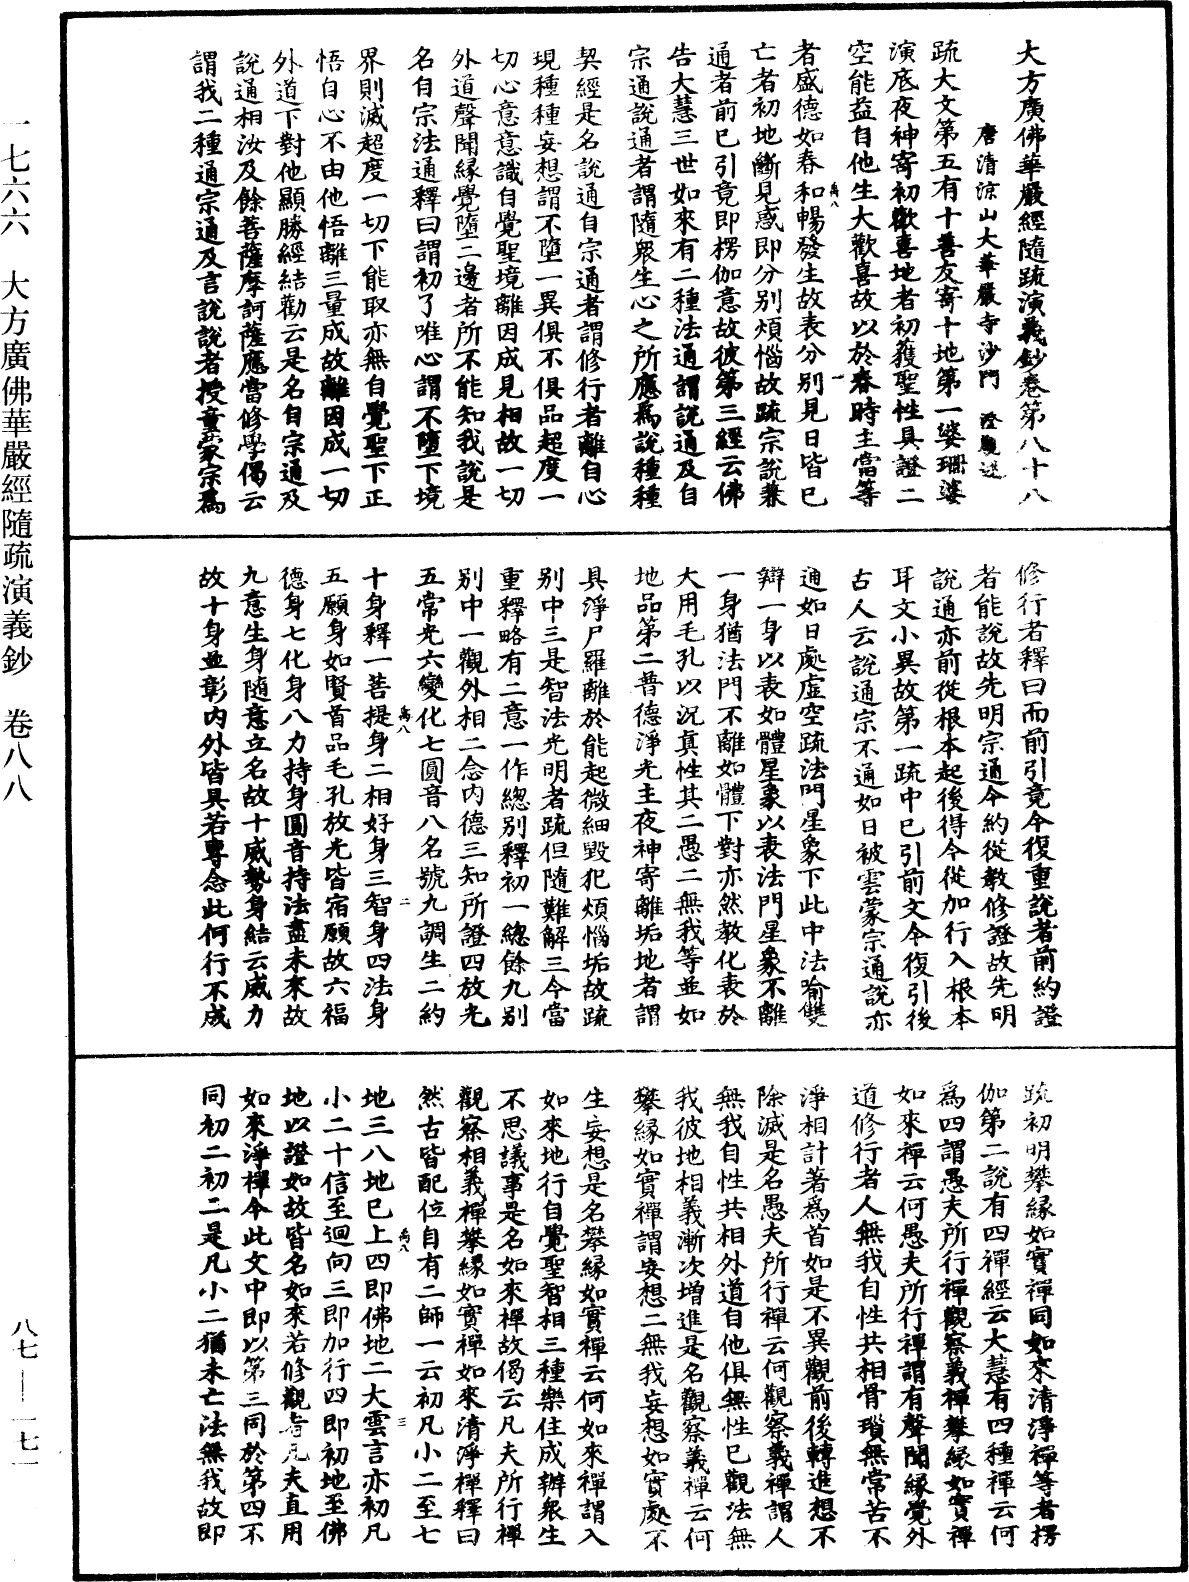 大方廣佛華嚴經隨疏演義鈔卷第八十八
唐清涼山大華嚴寺沙門 澄觀述
疏大文第五有十善友寄十地第一婆珊婆
演底夜神寄初歡喜地者初獲聖性具證二
空能益自他生大歡喜故以於春時主當等
者盛德如春和暢發生故表分別見日皆已
亡者初地斷見惑即分別煩惱故疏宗說兼
通者前已引竟即楞伽意故彼第三經云佛
告大慧三世如來有二種法通謂說通及自
宗通說通者謂隨衆生心之所應爲說種種
契經是名說通自宗通者謂修行者離自心
現種種妄想謂不墮一異俱不俱品超度一
切心意意識自覺聖境離因成見相故一切
外道聲聞緣覺墮二邊者所不能知我說是
名自宗法通釋曰謂初了唯心謂不墮下境
界則滅超度一切下能取亦無自覺聖下正
悟自心不由他悟離三量成故離因成一切
外道下對他顯勝經結勸云是名自宗通及
說通相汝及餘菩薩摩訶薩應當修學偈云
謂我二種通宗通及言說說者授童蒙宗爲
修行者釋曰而前引竟今復重說者前約證
者能說故先明宗通今約從教修證故先明
說通亦前從根本起後得今從加行入根本
耳文小異故第一疏中已引前文今復引後
古人云說通宗不通如日被雲蒙宗通說亦
通如日處虛空疏法門星象下此中法喻雙
辯一身以表如體星象以表法門星象不離
一身猶法門不離如體下對亦然教化表於
大用毛孔以況真性其二愚二無我等並如
地品第二普德淨光主夜神寄離垢地者謂
具淨尸羅離於能起微細毀犯煩惱垢故疏
別中三是智法光明者疏但隨難解三今當
重釋略有二意一作總別釋初一總餘九別
別中一觀外相二念內德三知所證四放光
五常光六變化七圓音八名號九調生二約
十身釋一菩提身二相好身三智身四法身
五願身如賢首品毛孔放光皆宿願故六福
德身七化身八力持身圓音持法盡未來故
九意生身隨意立名故十威勢身結云威力
故十身並彰內外皆具若專念此何行不成
疏初明攀緣如實禪同如來清淨禪等者楞
伽第二說有四禪經云大慧有四種禪云何
爲四謂愚夫所行禪觀察義禪攀緣如實禪
如來禪云何愚夫所行禪謂有聲聞緣覺外
道修行者人無我自性共相骨瑣無常苦不
淨相計著爲首如是不異觀前後轉進想不
除滅是名愚夫所行禪云何觀察義禪謂人
無我自性共相外道自他俱無性已觀法無
我彼地相義漸次增進是名觀察義禪云何
攀緣如實禪謂妄想二無我妄想如實處不
生妄想是名攀緣如實禪云何如來禪謂入
如來地行自覺聖智相三種樂住成辦衆生
不思議事是名如來禪故偈云凡夫所行禪
觀察相義禪攀緣如實禪如來清淨禪釋曰
然古皆配位自有二師一云初凡小二至七
地三八地已上四即佛地二大雲言亦初凡
小二十信至迴向三即加行四即初地至佛
地以證如故皆名如來若修觀者凡夫直用
如來淨禪今此文中即以第三同於第四不
同初二初二是凡小二猶未亡法無我故即
一七六六 大方廣佛華嚴經隨疏演義鈔 卷八八
八七—一七一
禹八
一
禹八
二
禹八
三